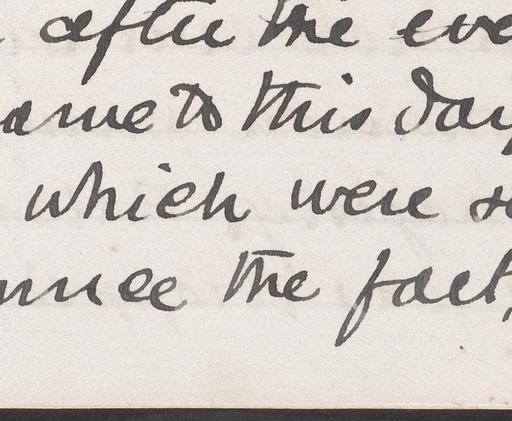 after the eve
ame to this day
which were s
nnce the fact,